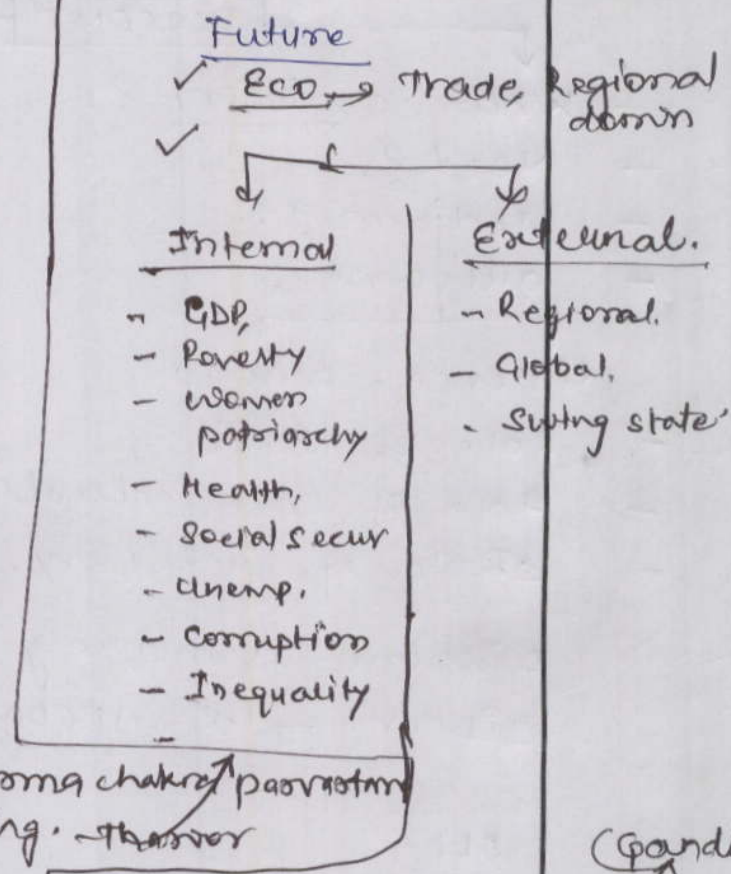 Future
✓ Eco → Trade, Regional
domin
✓
Internal
- GDP,
- Poverty
- Women
patriarchy
- Health,
- Social Secur
- Unemp.
- Corruption
- Inequality
-
External.
- Regional.
- Global,
- Swing state
chakra
ng. - Tharoor
(Gand